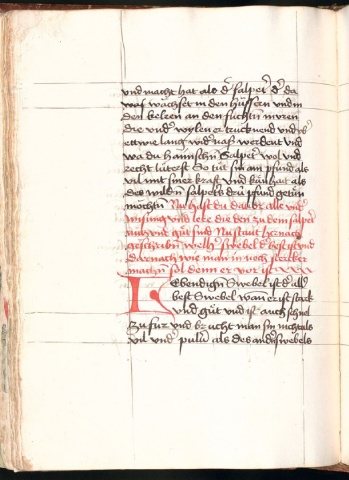 vnd macht hat als der salpeter der da
was wachset in den hüssern vnd in
den kelren an den füchten muren
die vnder wylen er trucknend vnd
ettwe lang vnd nass werdent vnd
wa du haimschen Salpeter wol vnd
recht lüterst So tüt sin ain pfund als
vil mit siner kraft vnd kunhait als
des wilden salpeters drü pfund getün
möchten Nu hast du das er alle vnder
wisung vnd lere die den zu dem salpeter
nütz vnd güt sind Nu stautt hernach
geschriben weller swebel der best ist vnd
darnach wie man in noch stercker
machen sol denn er vor ist
Lebendiger Swebel ist der aller
best Swebel wan er ist starck
vnd güt vnd ist auch schnel
Zu fur vnd brucht man sin nicht als
vil vnder puluer als des andern swebels